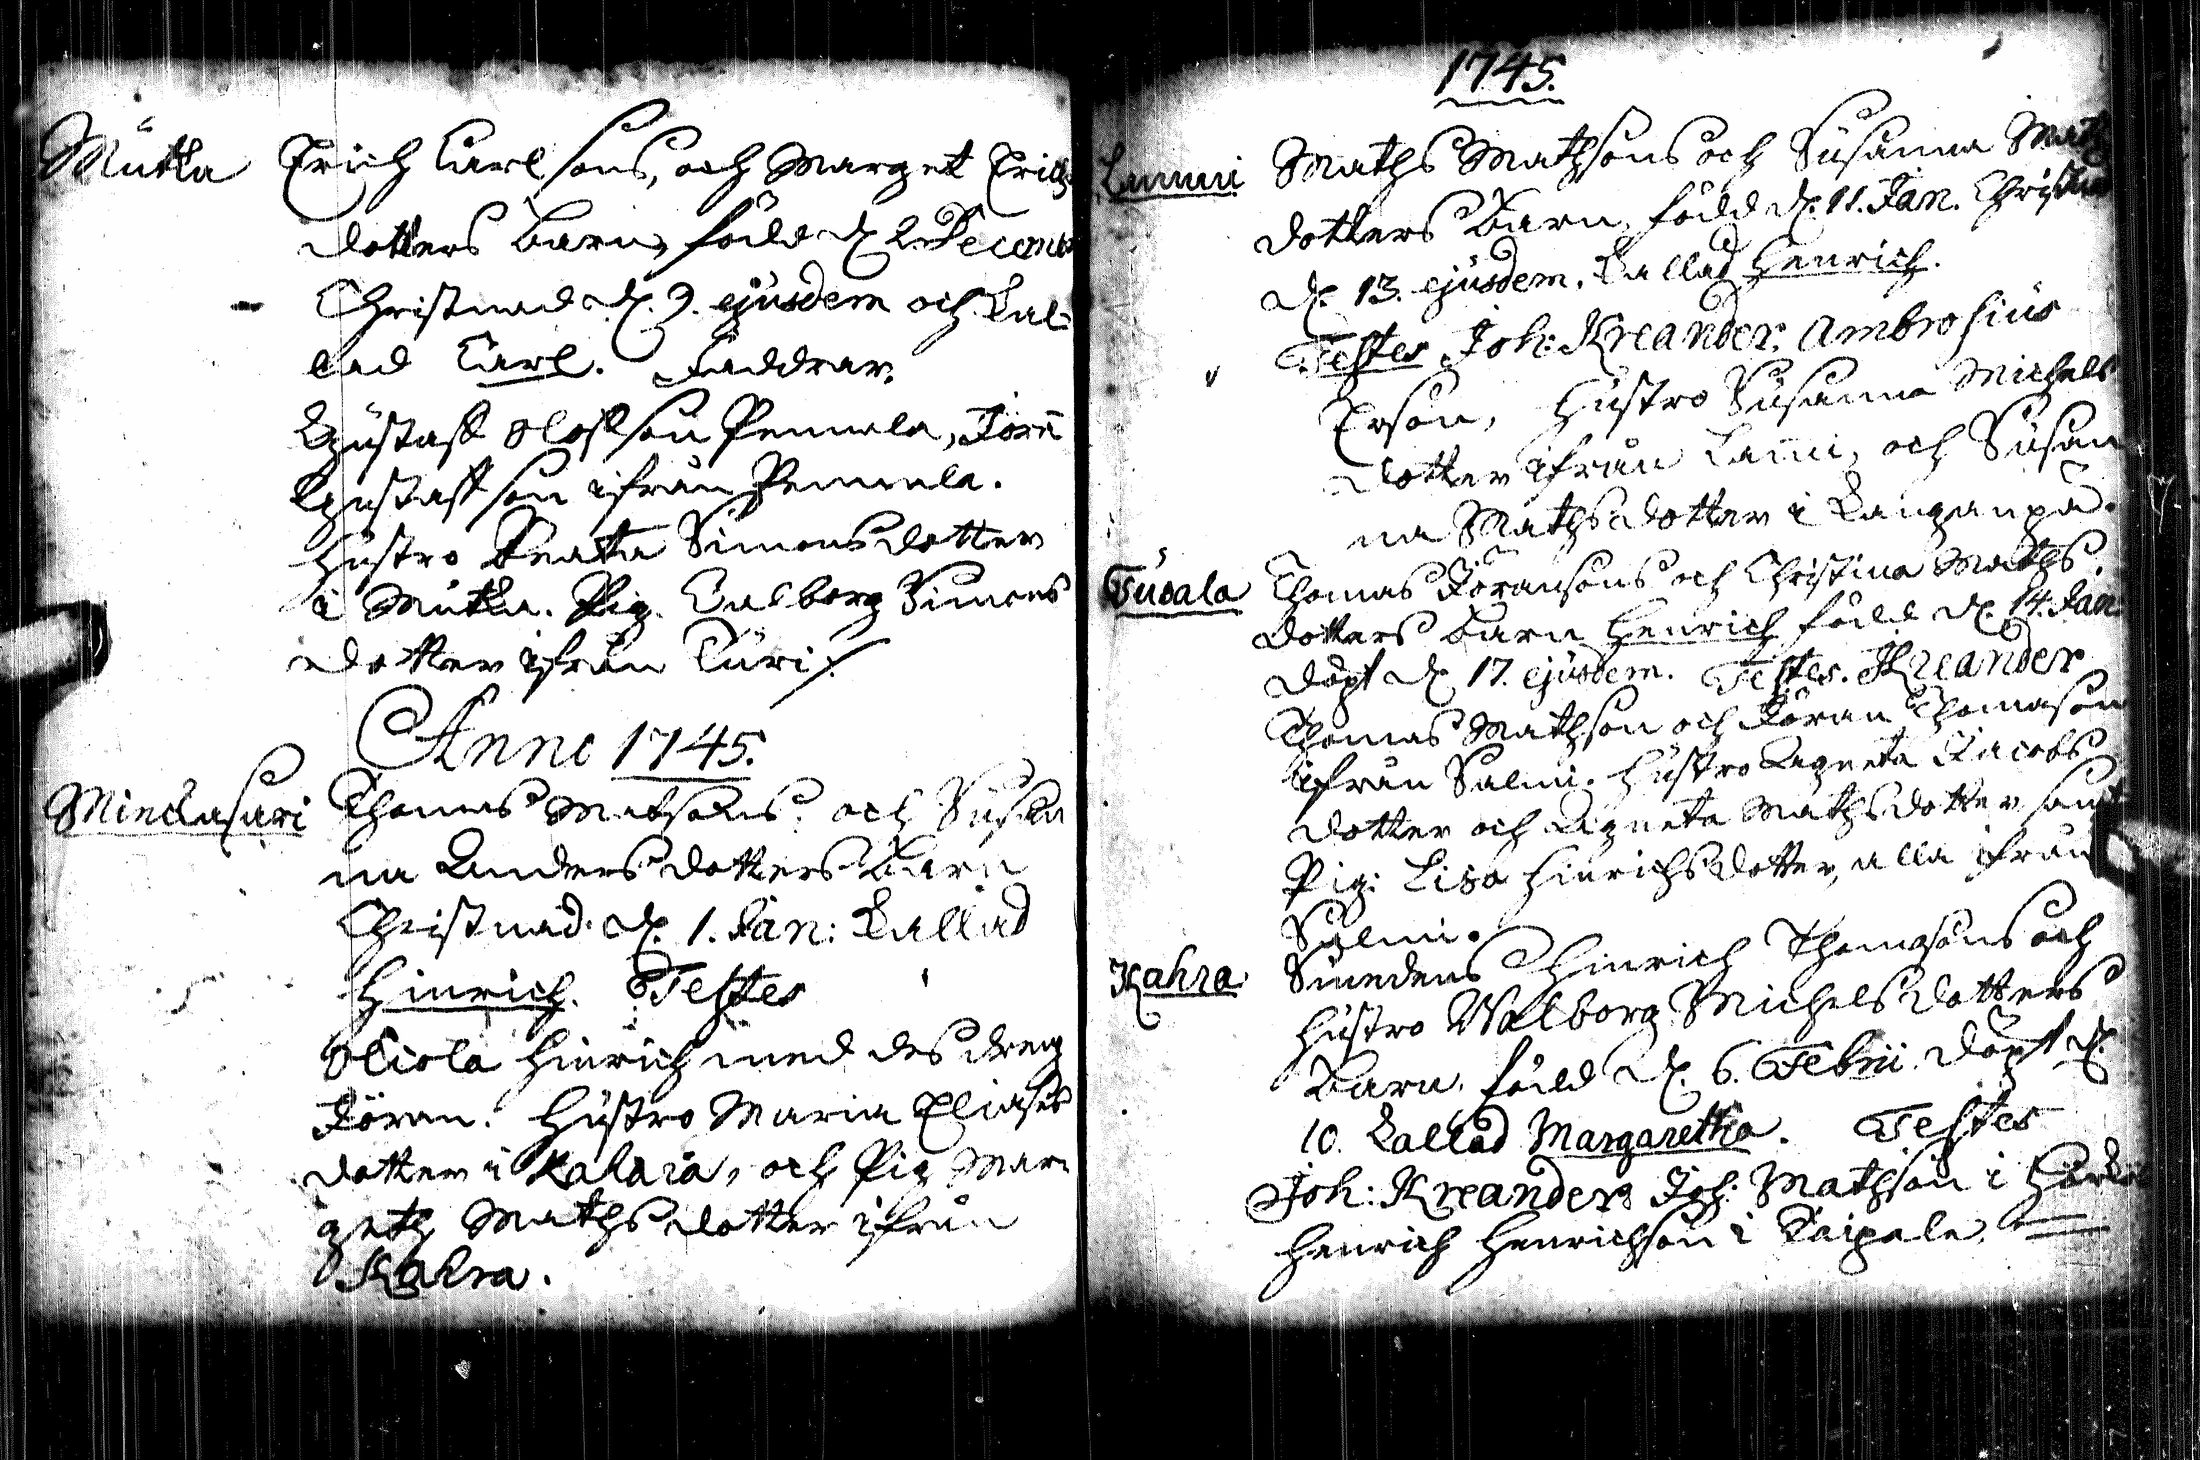 Mutka Erich Carlsons, och Marget Erichs
dotters barn, född d. 2 Decemb
Christnad d. 9. ejusdem och Kal-
lad Carl. Faddrar.
Gustaff Olofson Pennala, Jören
Gustafson ifrån Pennala.
Hustro Beata Simonsdotter
i Mutka. Pig. Valborg Simons
dotter ifrån Turi.
Anno 1745.
Minckasari Thomas Matsons och Susan
na Andersdotters barn
Christnad d. 1. Jan: Kallad
Hinrich. Testes
Hinrich med des dreng
Jören. Hustro Maria Elias
dotter i Kalaia, och Pig Mar
geth Mathsdotter ifrån
Kahra.
1745.
Lammi Maths Mathsons och Susanna Maths
dotters barn, född d. 11. Jan. Christnad
d. 13. ejusdem. Kallad Henrich.
Testes Joh: Kreander, Ambrosius
Erson, Hustro Susanna Michels
dotter ifrån Lammi, och Susan
na Mathsdotter i Kanganpä.
Tuoala Thomas Jöransons och Christina Maths
dotters barn Henrich född d. 14. Jan.
döpt d. 17. ejusdem. Testes. Kreander
Thomas Mathson och Jöran Thomason
ifrån Salmi. Hustro Agneta Jacobs
dotter och Agneta Mathsdotter samt
Pig: Lisa Hinrichsdotter, alla ifrån
Salmi.
Kahra Smedens Hinrich Thomasons och
Hustro Walborg Michelsdotters
barn, född d. 6. Febrii. döpt d.
10. Kallad Margaretha. Testes
Joh: Kreander Joh: Mathson i
Henrich Henrichson i Taipale.